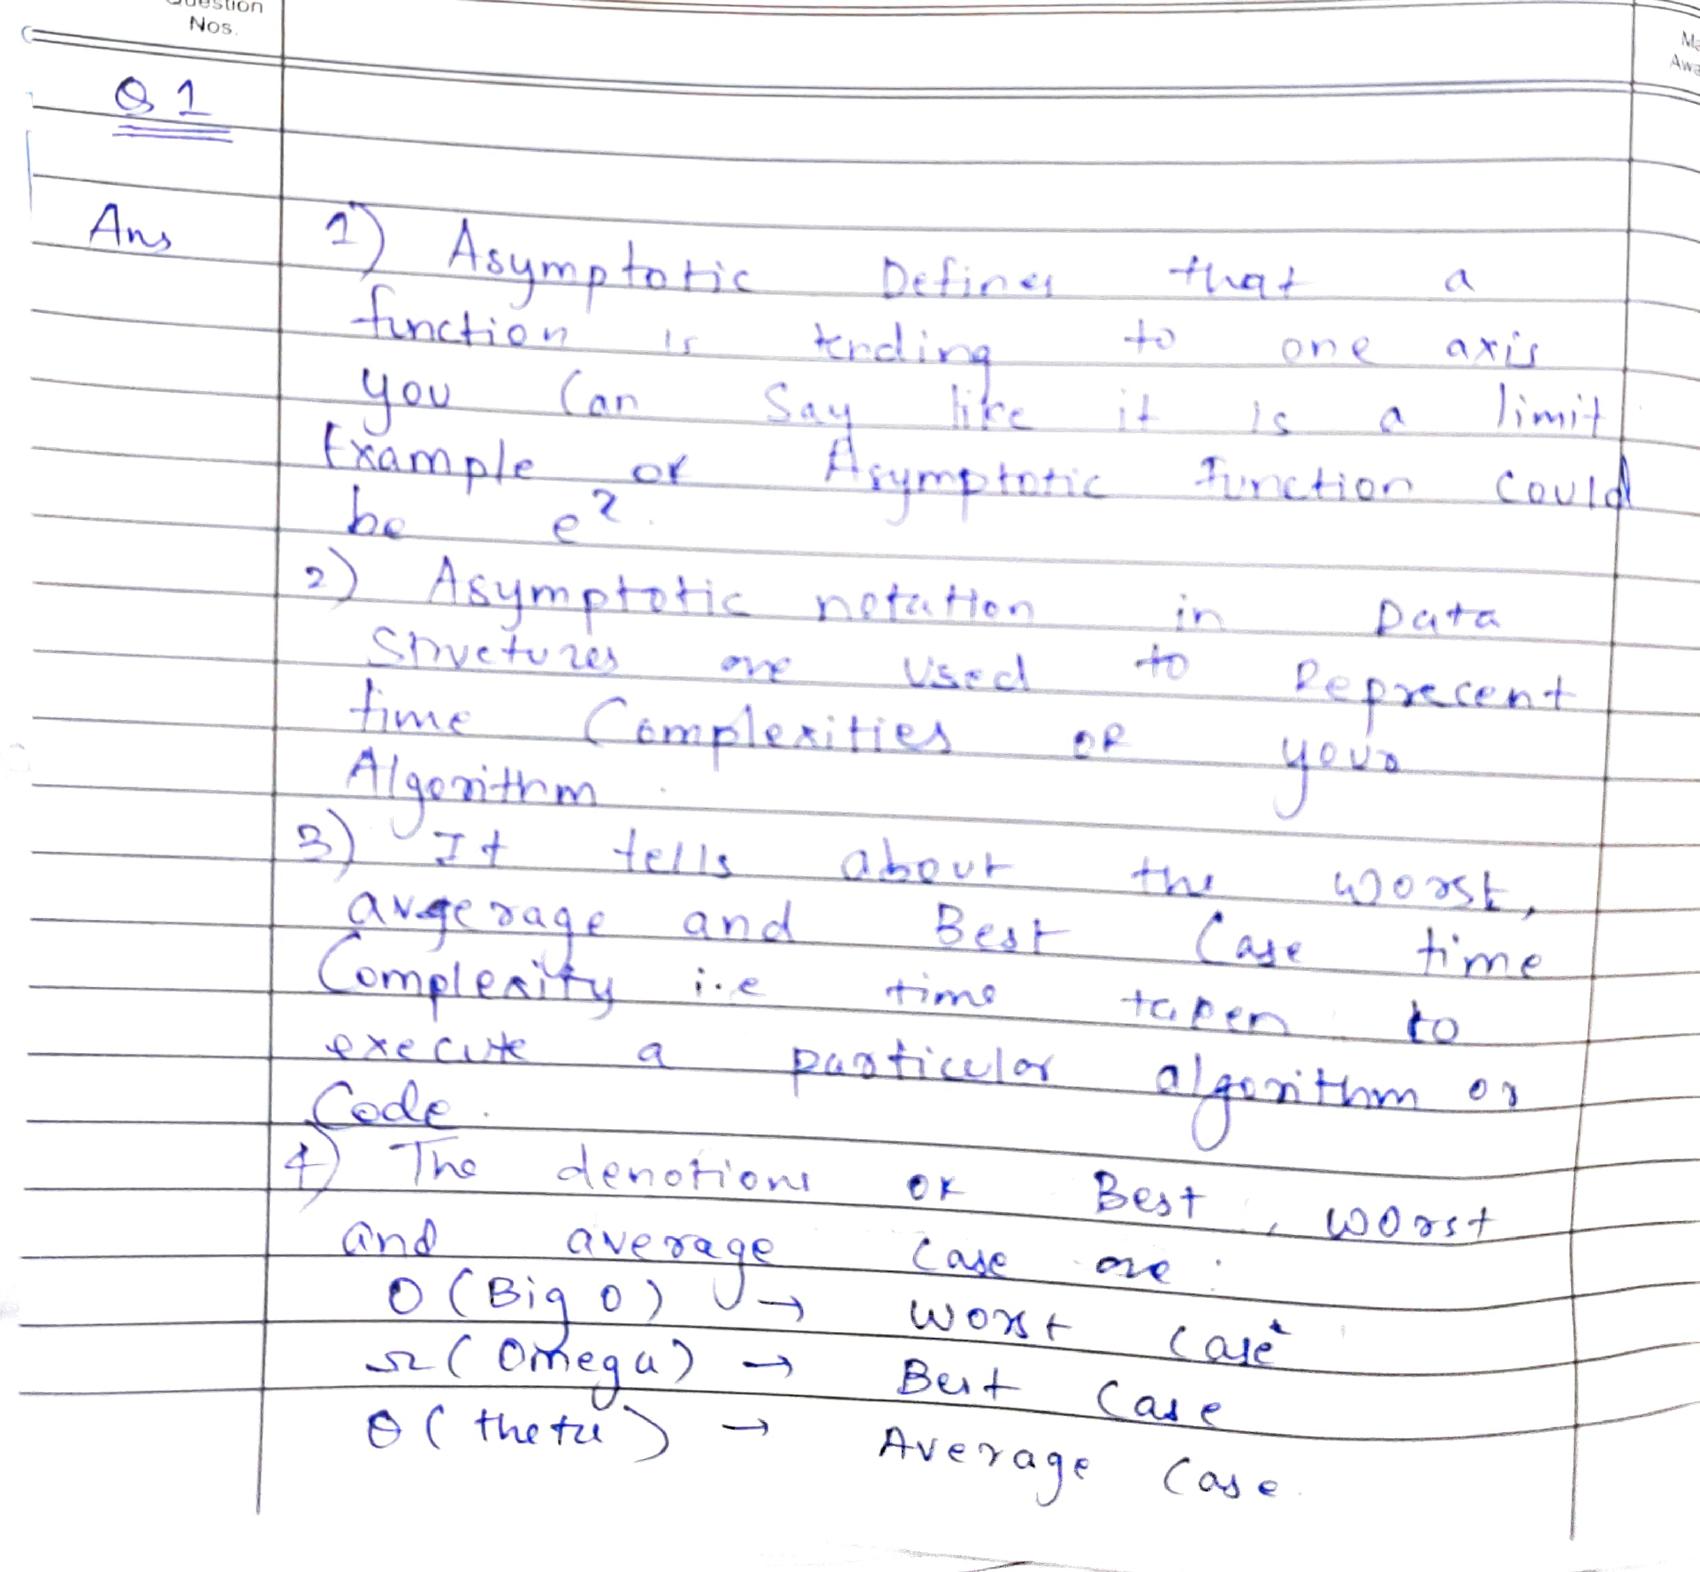 Question
Nos.
Q 1
Ans
1) Asymptotic Defines that a
function is tending to one axis
you can say like it is a limit
Example of Asymptotic Function could
be e^x.
2) Asymptotic notation in Data
Structures are used to Reprecent
time Complexities of your
Algorithm
3) It tells about the worst,
avgerage and Best Case time
Complexity i.e time taken to
execute a particular algorithm or
Code.
4) The denotions of Best, worst
and average case are :
O (Big O) → worst case
Ω (Omega) → Best Case
θ (theta) → Average Case.